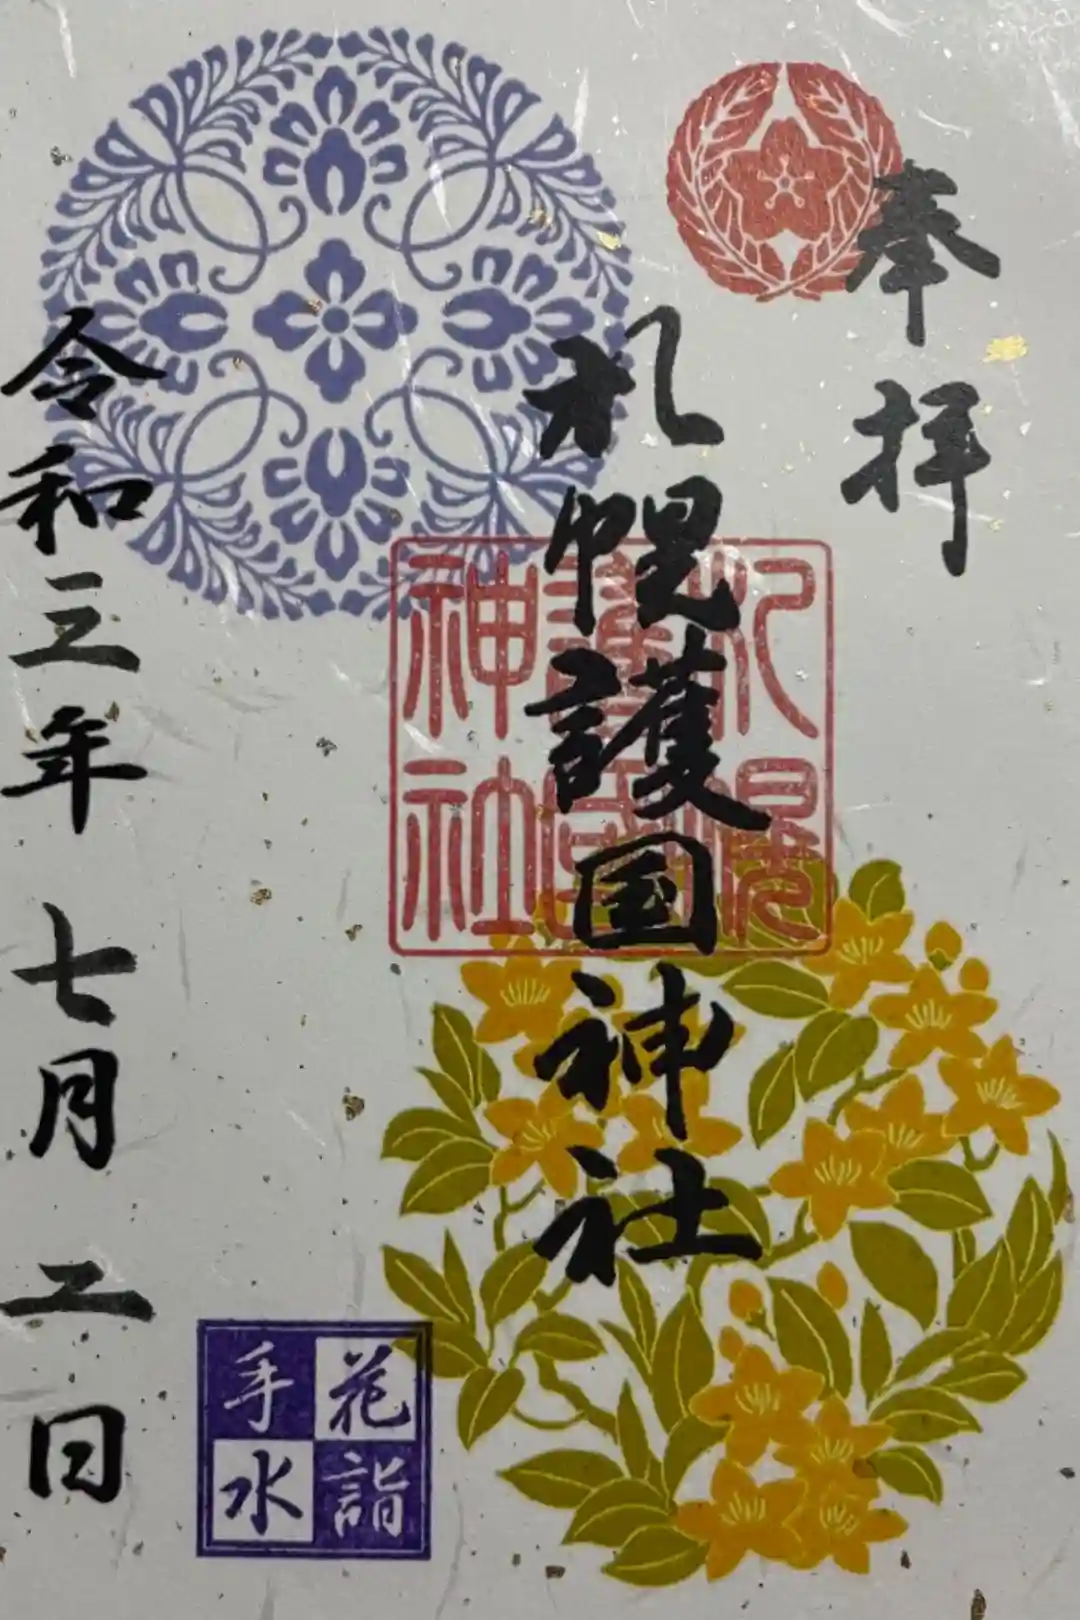 奉拝
札幌護国神社
札幌
護國
神社
令和三年 七月 二日
花詣
手水